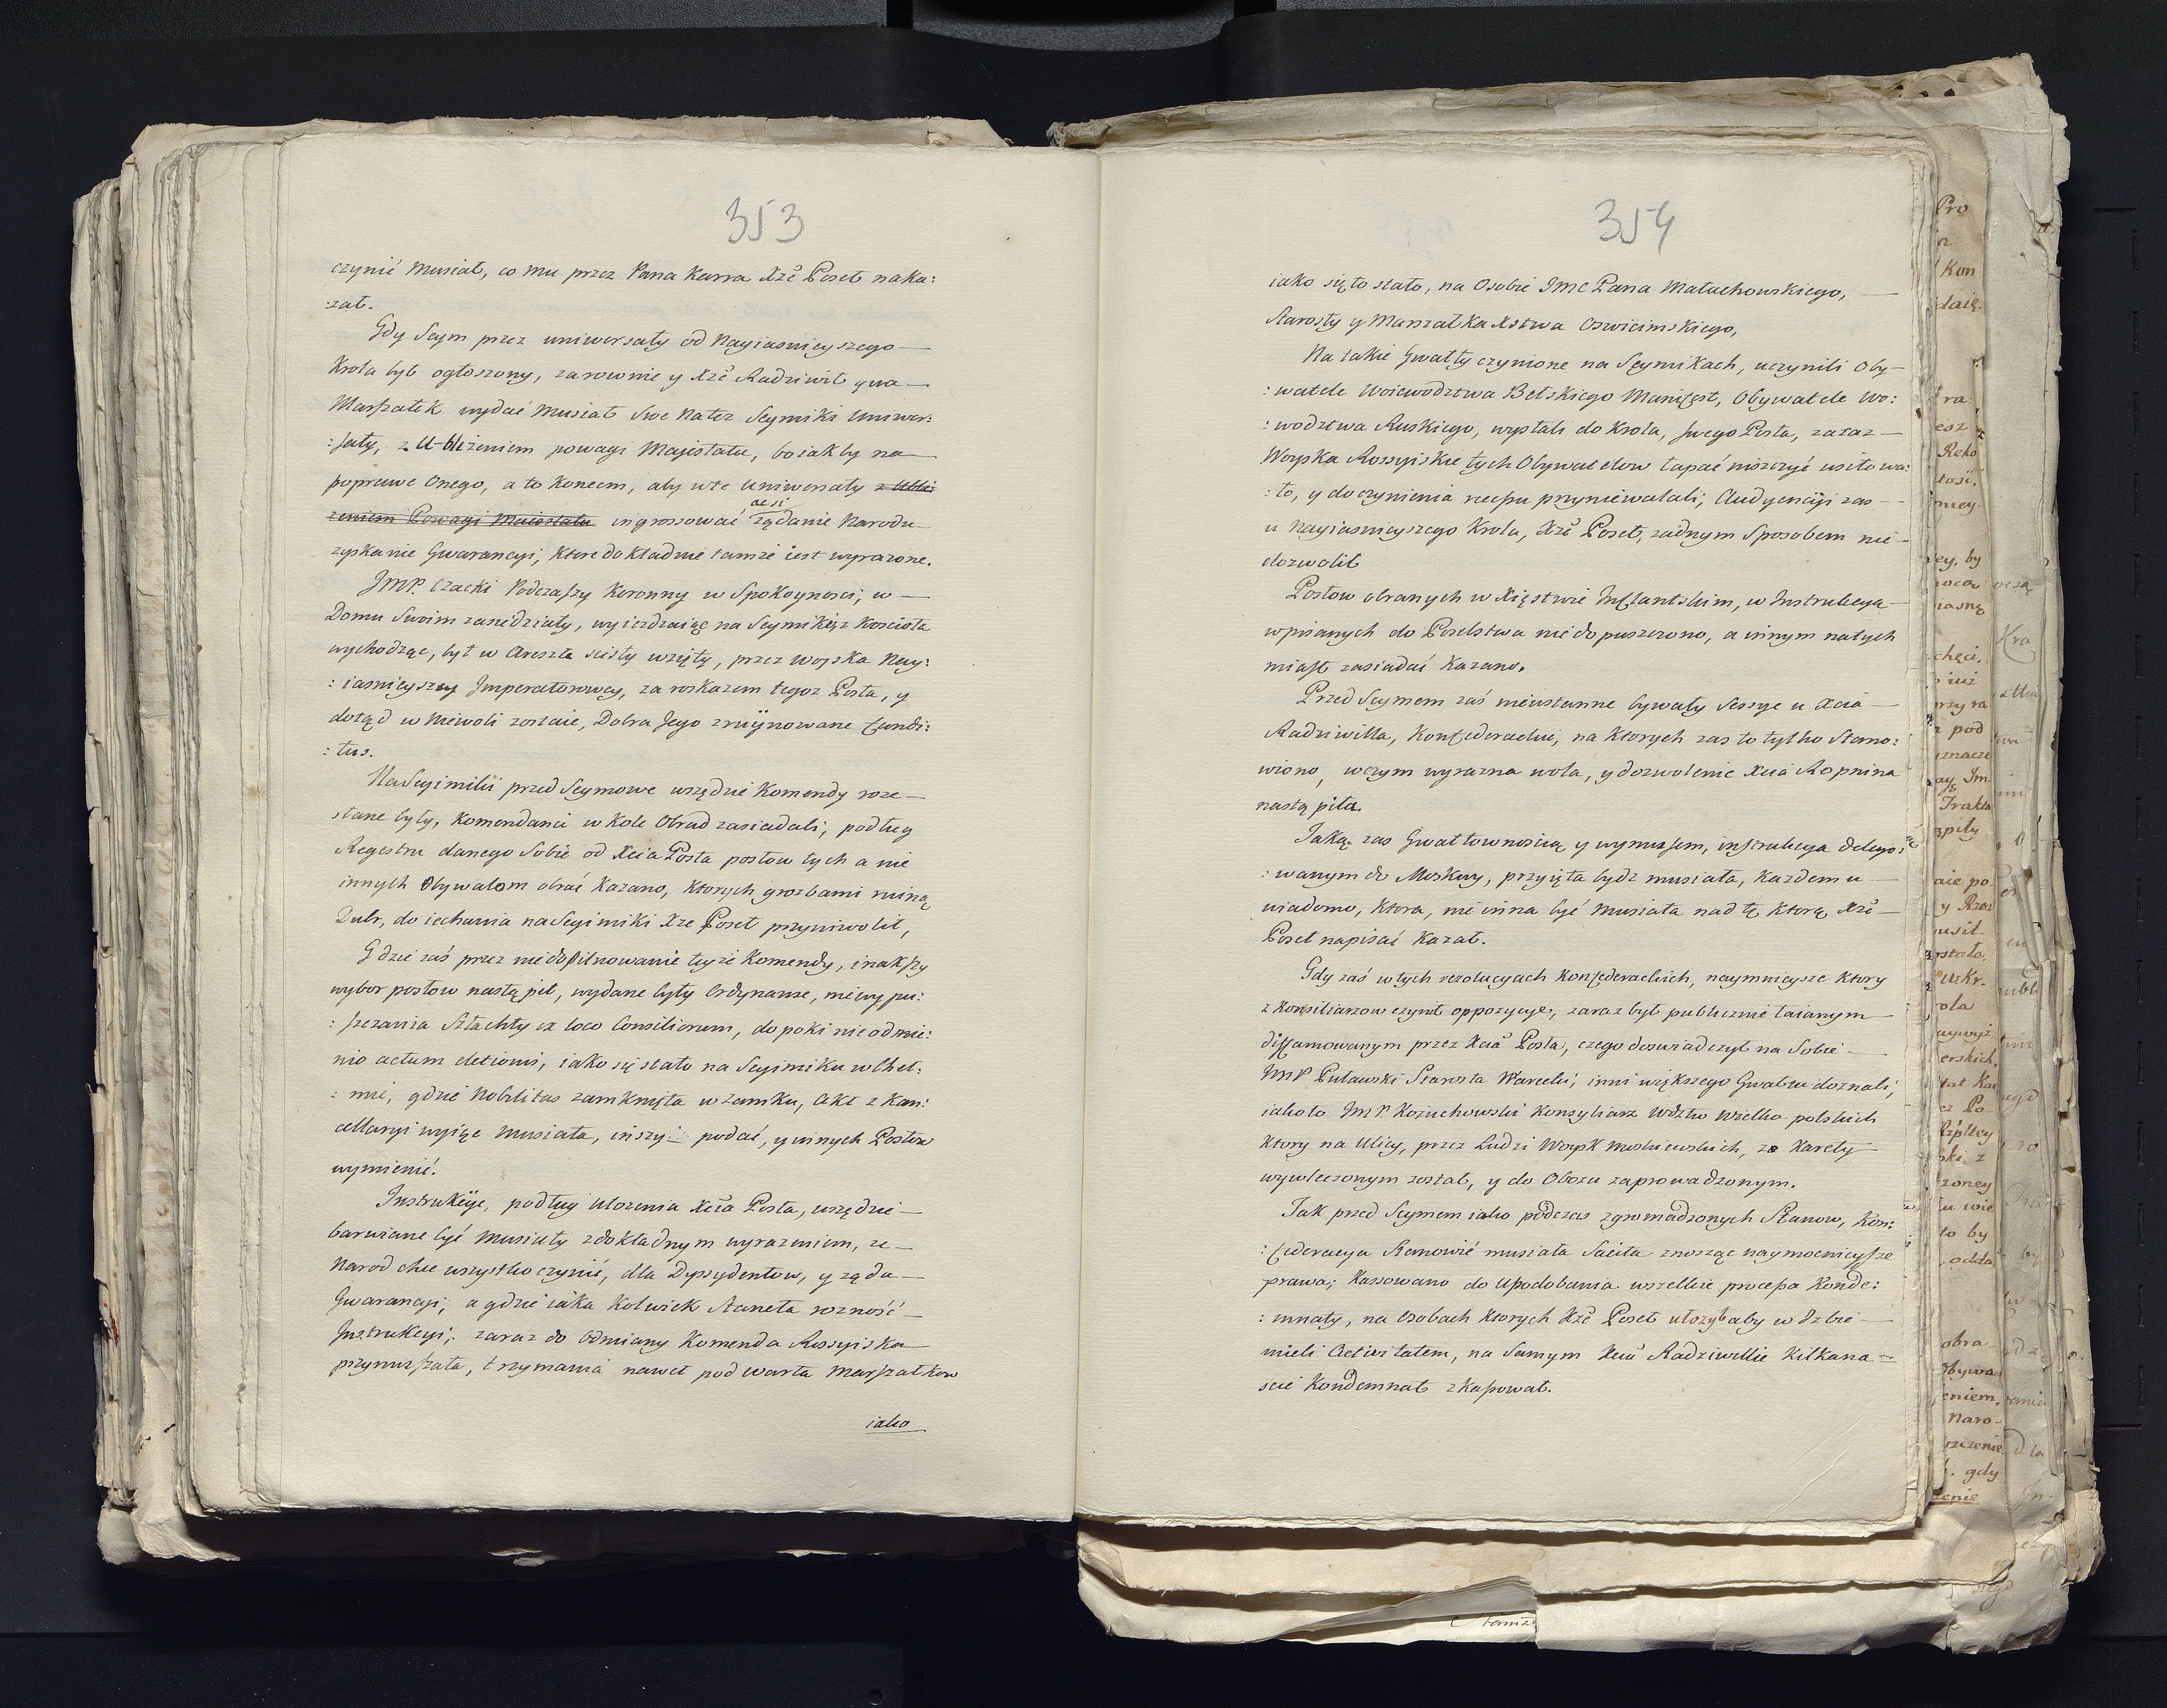 353
czynić musiał, co mu przez Pana Karra Xże Poseł naka:
:zał.
Gdy Seym przez uniwersały od Nayiasnieyszego
Krola był ogłoszony, zarownie y Xże Radziwił qua
Marszałek wydać musiał Swe na tez Seymiki Uniwer:
:sały, z Ubliżeniem powagi Majestatu, bo iakby na
poprawe Onego, a to koncem, aby w te Uniwersały z Ubli
żeniem Powagi Maiestatu ingrossować acsi żądanie Narodu
zyskanie Gwarancyi, ktore dokładnie tamże iest wyrażone.
JMP. Czacki Podczaszy Koronny w Spokoynosci, w
Domu Swoim zasiedziały, wyieżdzaiąc na Seymik z Koscioła
wychodząc, był w Areszt scisły wzięty, przez woyska Nay:
:iasnieyszey Imperatorowey, za roskazem tegoz Posła, y
dotąd w Niewoli zostaie, Dobra Jego zruynowane fundi:
:tus.
Na Seyimiki przed Seymowe wszędzie Komendy roze
słane były, Komendanci w Kole Obrad zasiadali, podług
Regestru danego Sobie od Xcia Posła posłow tych a nie
innych Obywatelom obrać kazano, ktorych grozbami ruiną
Dobr, do iechania na Seyimiki Xze Poseł przyniwolił,
Gdzie zaś przez niedopilnowanie teyże Komendy, inakszy
wybor posłow nastąpił, wydane były Ordynanse, niewypu:
:szczania Szlachty ex loco Consiliorum, dopoki nie odmie:
nio actum electionis, iako się stało na Seyimiku w Cheł:
:mie, gdzie Nobilitas zamknięta w zamku, Akt z Kan:
cellaryi wyiąc musiała, inszy podać, y innych Posłow
wymienić.
Instrukcye, podług Ułozenia Xcia Posła, wszędzie
barwiane być musiały z dokładnym wyrazeniem, ze
Narod chce wszystko czynić, dla Dyssydentow, y żąda
Gwarancyi, a gdzie iaka kolwiek staneła rozność
Instrukcyi, zaraz do Odmiany Komenda Rossyiska
przymuszała, trzymania nawet pod warta Marszałkow
iako
354
iako się to stało, na Osobie JMC Pana Małachowskiego,
Starosty y Marszałka Xstwa Oswicimskiego,
Na takie Gwałty czynione na Seymikach, uczynili Oby
:watele Woiewodztwa Bełskiego Manifest, Obywatele Wo:
:wodztwa Ruskiego, wysłali do Krola, swego Posła, zaraz
Woyska Rossyiskie tych Obywatelow łapać niszczyć usiłowa:
:ło, y do czynienia recessu przyniewalali; Audyencyi zas
u Nayiasnieyszego Krola, Xże Poseł, żadnym Sposobem nie
dozwolił
Posłow obranych w Xięstwie Inflantskim, w Instrukcya
wpisanych do Poselstwa niedopuszczono, a innym natych
miast zasiadać kazano.
Przed Seymem zaś nieustanne bywały Sessye u Xcia
Radziwiłła, Konfederackie, na ktorych zas to tylko Stano:
wiono, w czym wyrazna wola, y dozwolenie Xcia Repnina
nastąpiła.
Jaką zas Gwałtownoscią y wymussem, instrukcya delego:
:wanym do Moskwy, przyięta bydz musiała, każdemu
wiadomo, ktora, nie inna być musiała nad tę ktorą Xże
Poseł napisać kazał.
Gdy zaś w tych rezolucyach Konfederackich, naymnieysze ktory
z Konsiliarzow czynił oppozycye, zaraz był publicznie łaianym
diffamowanym przez Xcia Posła, czego doswiadczył na Sobie
JMP Puławski Starosta Warecki, inni większego Gwałtu doznali,
iako to JMP. Kożuchowski Konsyliarz Wdztw Wielko-polskich
ktory na Ulicy, przez Ludzi Woysk Moskiewskich, z Karety
wywleczonym został, y do Obozu zaprowadzonym.
Jak przed Seymem iako podczas zgromadzonych Stanow, Kon:
:federacya Stanowić musiała Sacita znosząc naymocnieysze
prawa; Kassowano do Upodobania wszelkie processa Konde:
:mnaty, na Osobach ktorych Xże Poseł ułozył aby w Izbie
mieli Activitatem, na Samym Xciu Radziwille kilkana
scie Kondemnat zkassował.